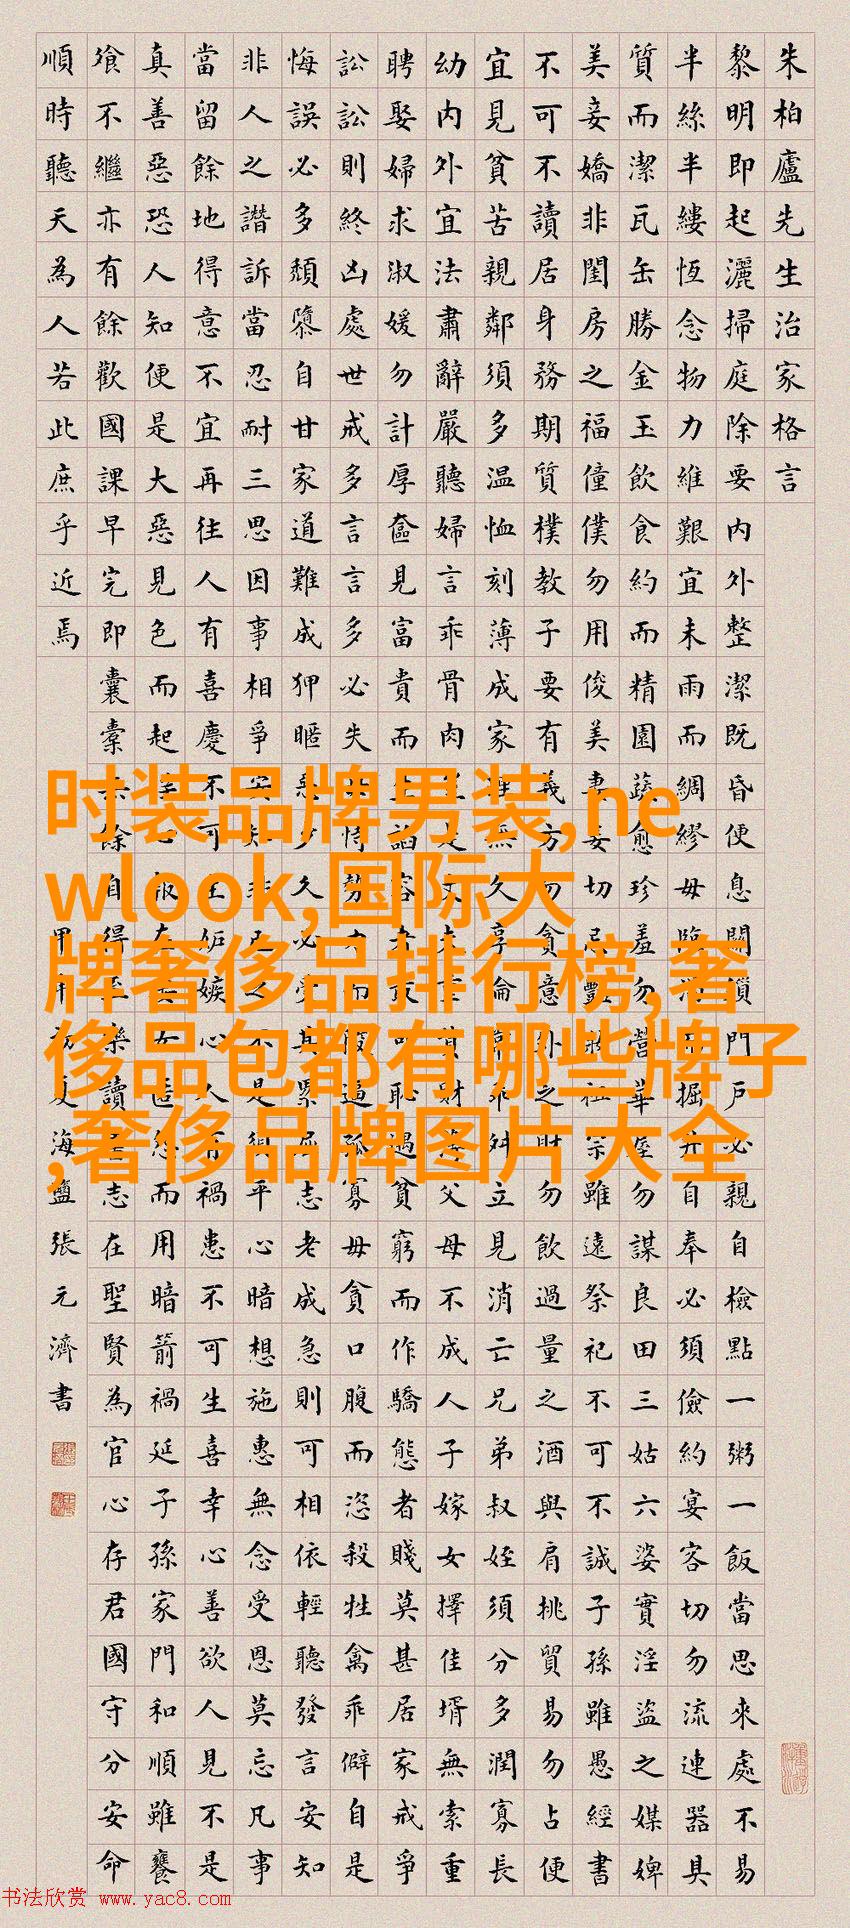 朱柏廬先生治家格言
黎明即起灑掃庭除要內外整潔既昏便息關鎖門戶必親自檢點一粥一飯當思來處不易
半絲半縷恆念物力維艱宜未雨而綢繆毋臨渴而掘井自奉必須儉約宴客切勿流連器具
質而潔瓦缶勝金玉飲食約而精園蔬愈珍羞勿營華屋勿謀良田三姑六婆實淫盜之媒婢
美妾嬌非閨房之福僮僕勿用俊美妻妾切忌艷粧祖宗雖遠祭祀不可不誠子孫雖愚經書
不可不讀居身務期質樸教子要有義方勿貪意外之財勿飲過量之酒與肩挑貿易勿占便
宜見貧苦親鄰須多温恤刻薄成家理無久享倫常乖舛立見消亡兄弟叔姪須分多潤寡長
幼內外宜法肅辭嚴聽婦言乖骨肉豈是丈夫重貲財薄父母不成人子嫁女擇佳壻無索重
聘娶婦求淑媛勿計厚奩見富貴而生諂容者最可恥遇貧窮而作驕態者賤莫甚居家戒爭
訟訟則終凶處世戒多言言多必失毋恃勢力而凌逼孤寡毋貪口腹而恣殺牲禽乖僻自是
悔誤必多頹隳自甘家道難成狎暱惡少久必受其累屈志老成急則可相依輕聽發言安知
非人之譖訴當忍耐三思因事相爭安知非己之不是須平心暗想施惠無念受恩莫忘凡事
當留餘地得意不宜再往人有喜慶不可生妬嫉心人有禍患不可生喜幸心善欲人見不是
真善惡恐人知便是大惡見色而起淫心報在妻女匿怨而用暗箭禍延子孫家門和順雖饔
飧不繼亦有餘歡國課早完即囊橐無餘自得至樂讀書志在聖賢為官心存君國守分安命
順時聽天為人若此庶乎近焉
初夏海鹽張元濟書
时装品牌男装,ne
wlook,国际大
牌奢侈品排行榜,奢
侈品包都有哪些牌子
,奢侈品牌图片大全
书法欣赏 www.yac8.com